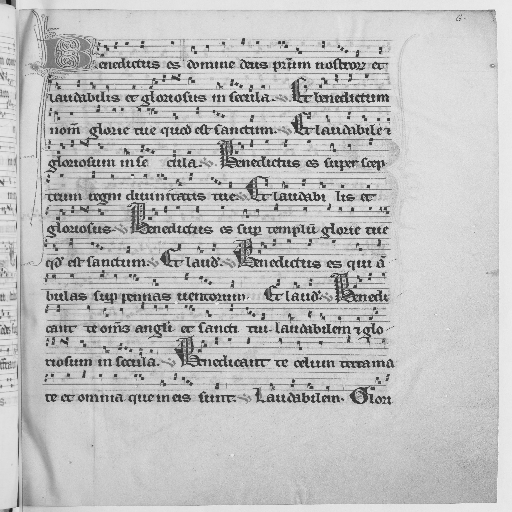 Benedictus es domine deus pr̄um nostrorꝝ et
laudabilis et gloriosus in secula. Et benedictum
nom̄ glorie tue quod est sanctum. Et laudabile ⁊
gloriosum in se cula. Benedictus es super scep
trum regni diuinitatis tue Et laudabi lis et
gloriosus. Benedictus es sup templū glorie tue
qd̄ est sanctum. Et laud̄. Benedictus es qui ā
bulas sup pennas uentorum. Et laud̄. Benedi
cant te om̄s angli et sancti tui laudabilem ⁊ glo
riosum in secula. Benedicant te celum terra ma
re et omnia que in eis sunt. Laudabilem. Glori